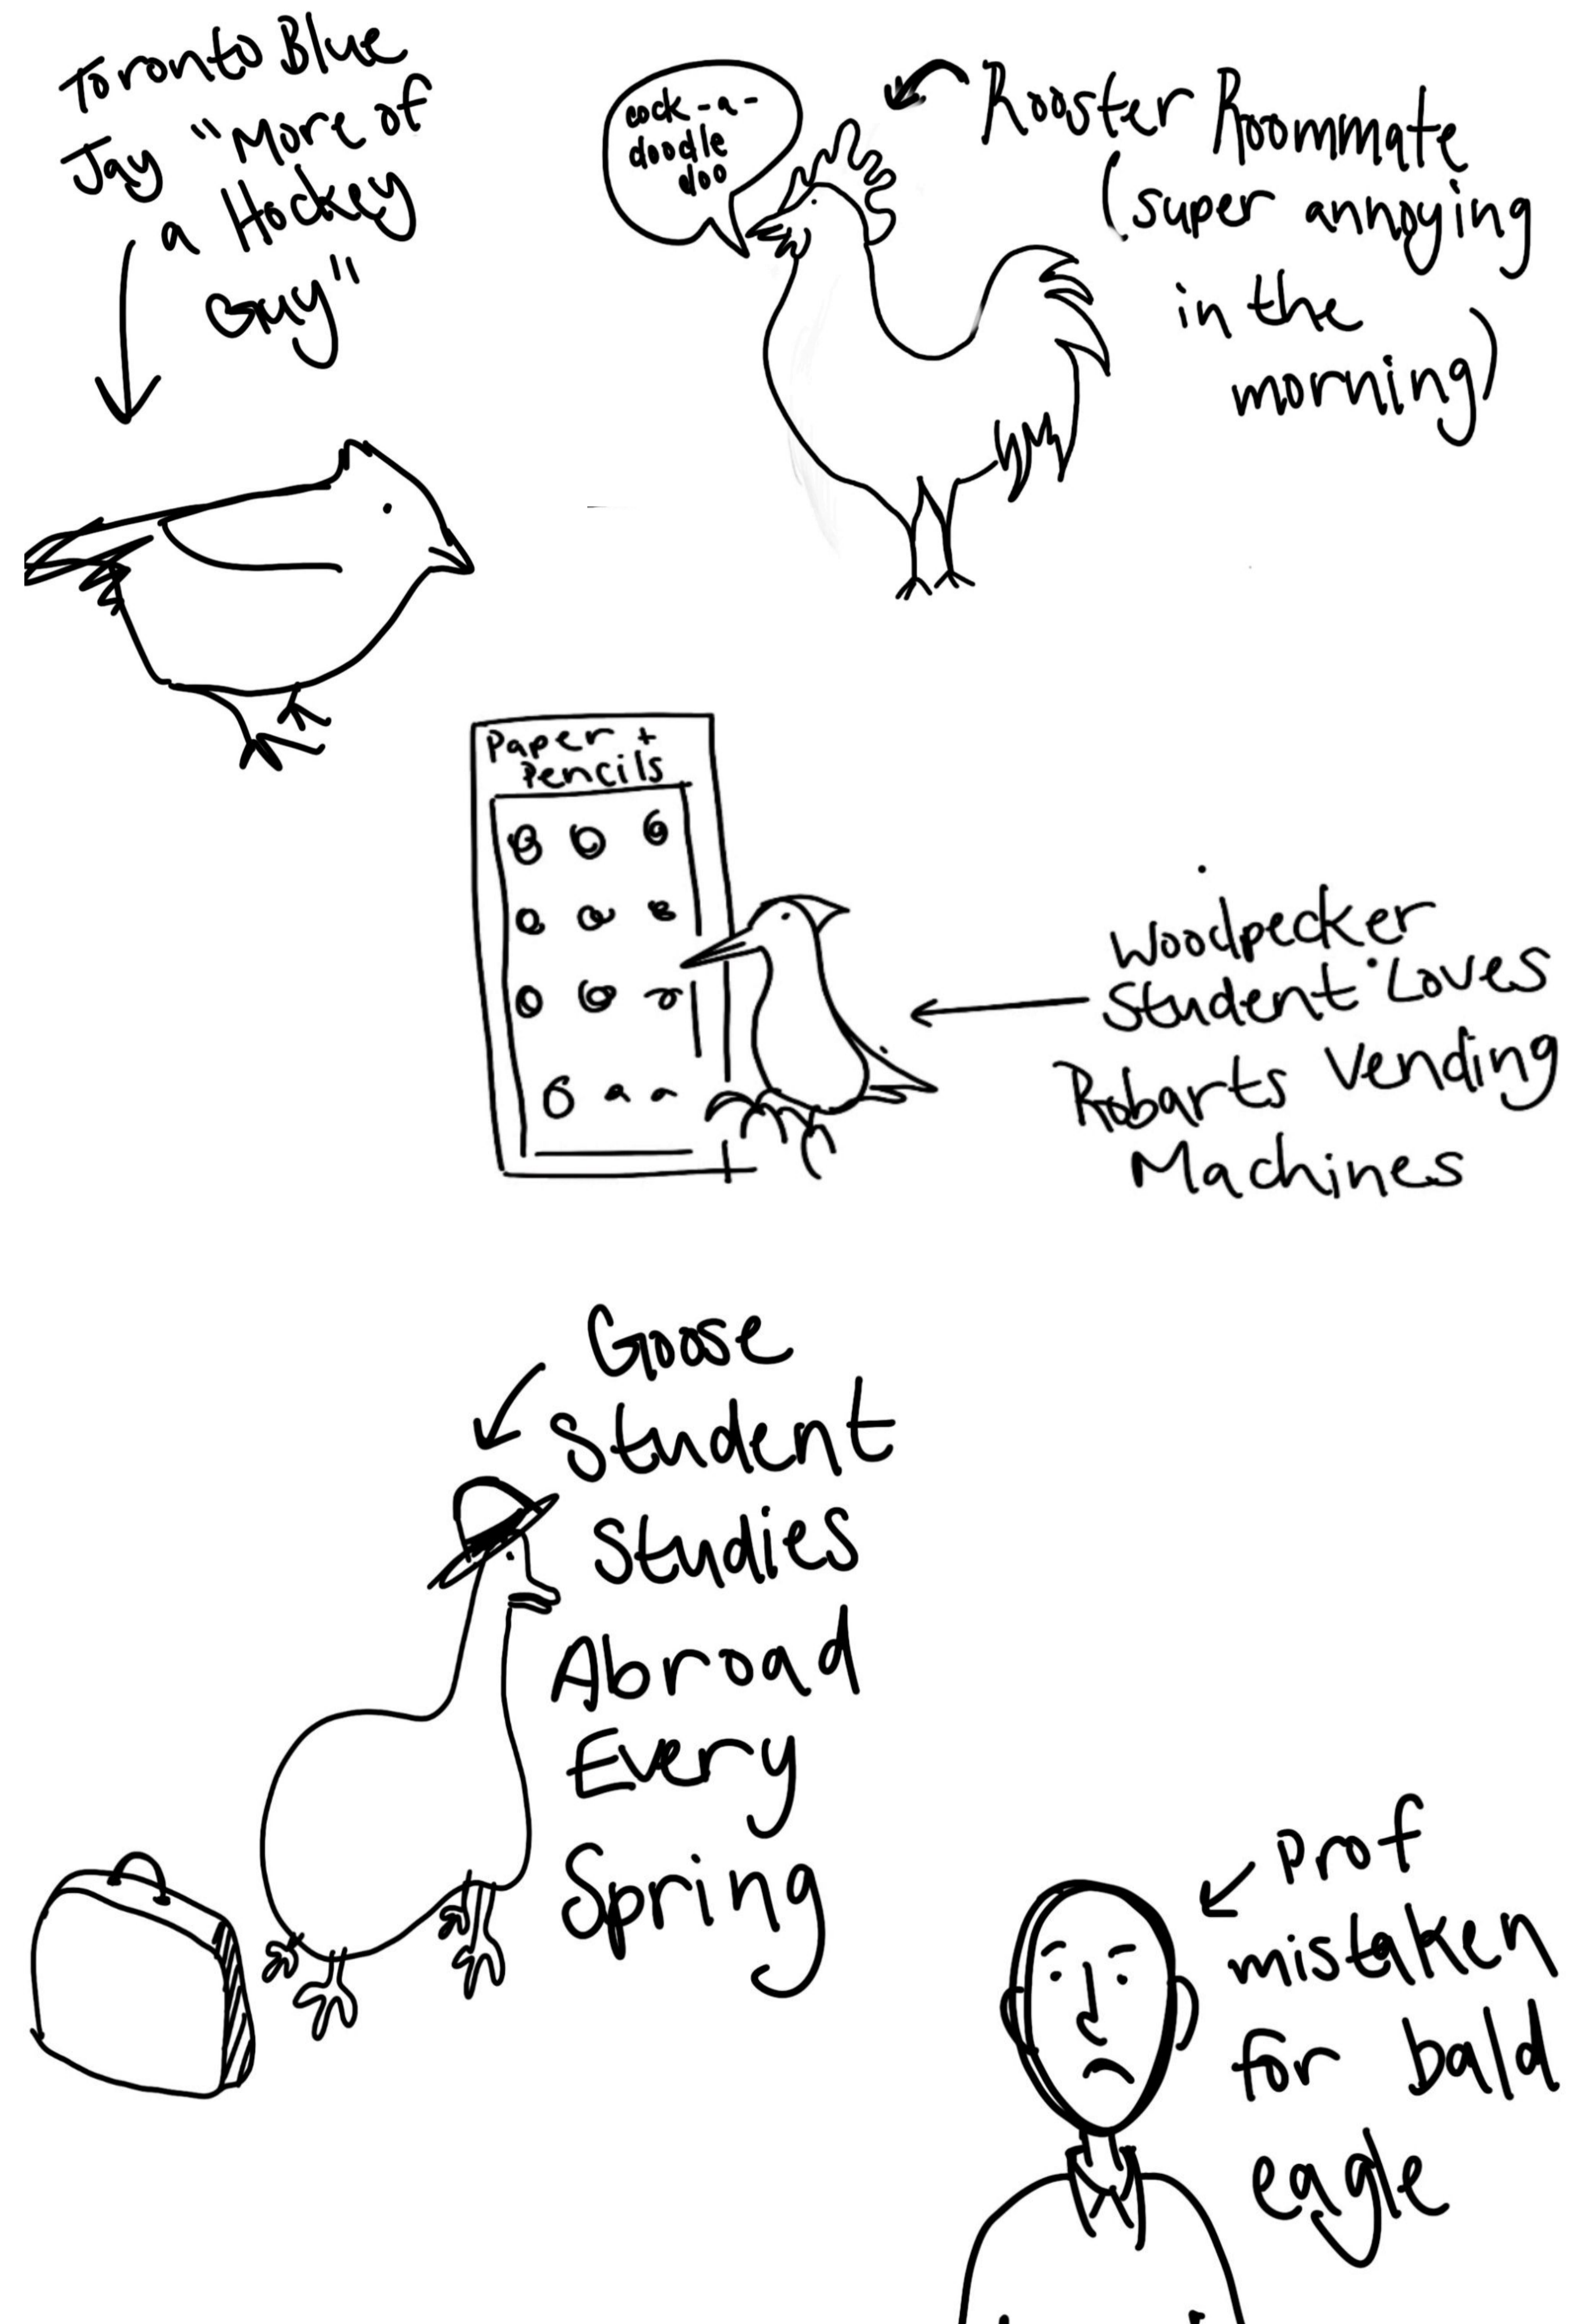 Toronto Blue
Jay "More of
a Hockey
Guy"
cock-a-
doodle
doo
Rooster Roommate
(super annoying
in the
morning)
Paper +
Pencils
Woodpecker
Student Loves
Robarts Vending
Machines
Goose
Student
Studies
Abroad
Every
Spring
Prof
mistaken
for bald
eagle